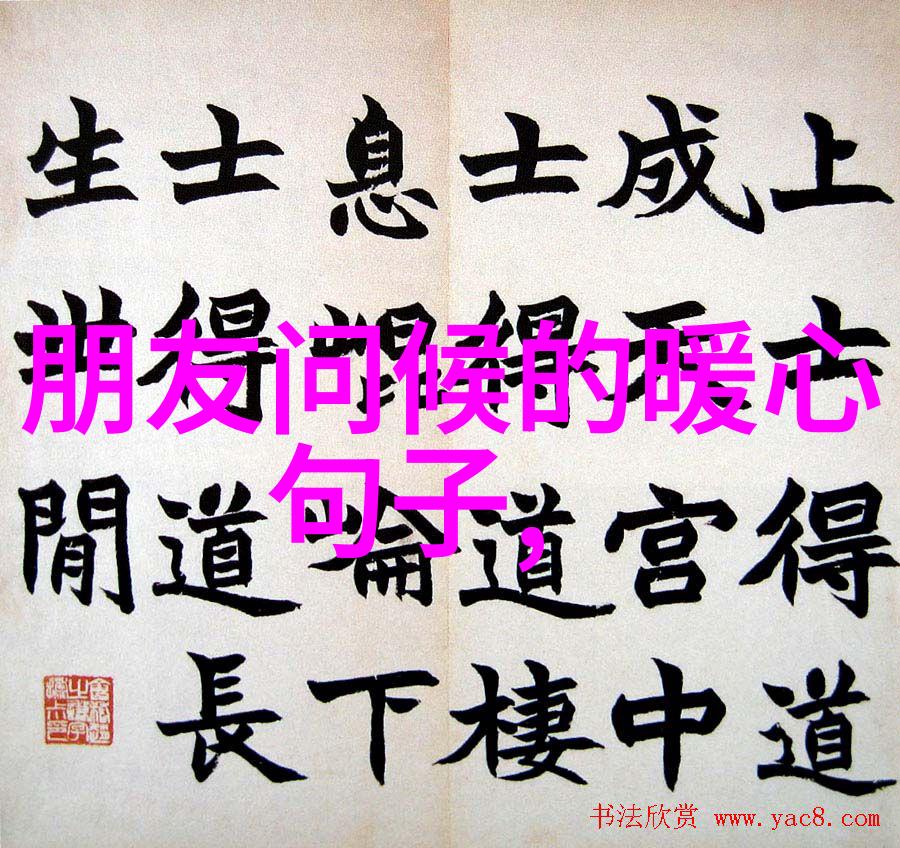 上士得道
成天宮中
士得道棲
息崐崘下
士得道長
生世間
朋友问候的暖心
句子,
书法欣赏 www.yac8.com